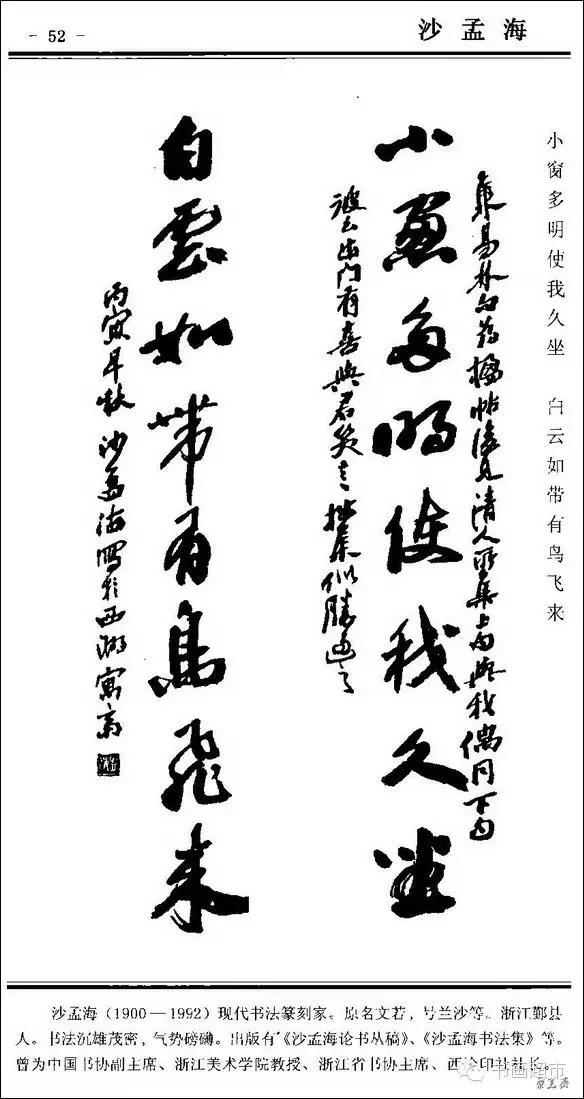 - 52 -
沙孟海
小窗多明使我久坐 白云如带有鸟飞来
集易林句为楹帖后见清人所集上句与我偶同下句
彼云出门有喜与君笑言
小窗多明使我久坐
白云如带有鸟飞来
丙寅早秋沙孟海写于西湖寓斋
沙孟海(1900—1992)现代书法篆刻家。原名文若,号兰沙等。浙江鄞县
人。书法沉雄茂密,气势磅礴。出版有《沙孟海论书丛稿》、《沙孟海书法集》等。
曾为中国书协副主席、浙江美术学院教授、浙江省书协主席、西泠印社社长。
书画超市